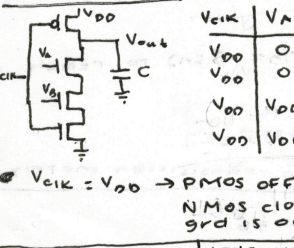 V_DD
V_out
CLK
V_A
V_B
C
V_CLK V_A
V_DD 0
V_DD 0
V_DD V_D
V_DD V_D
V_CLK = V_DD → PMOS OFF
NMOS clo
grd is o